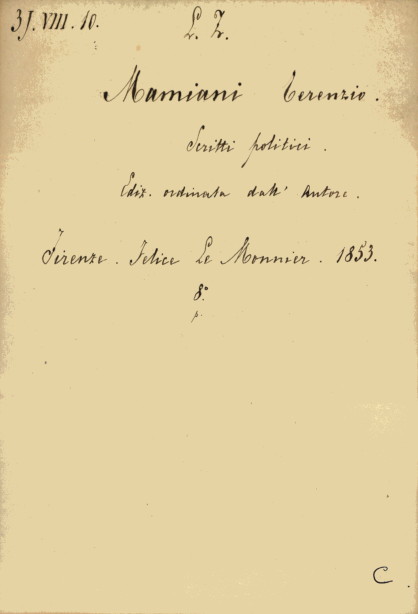 3J.VIII.10. L. Z.
Mamiani Terenzio.
Scritti politici.
Ediz. ordinata dall' Autore.
Firenze. Felice Le Monnier. 1853.
8.°
p.
C